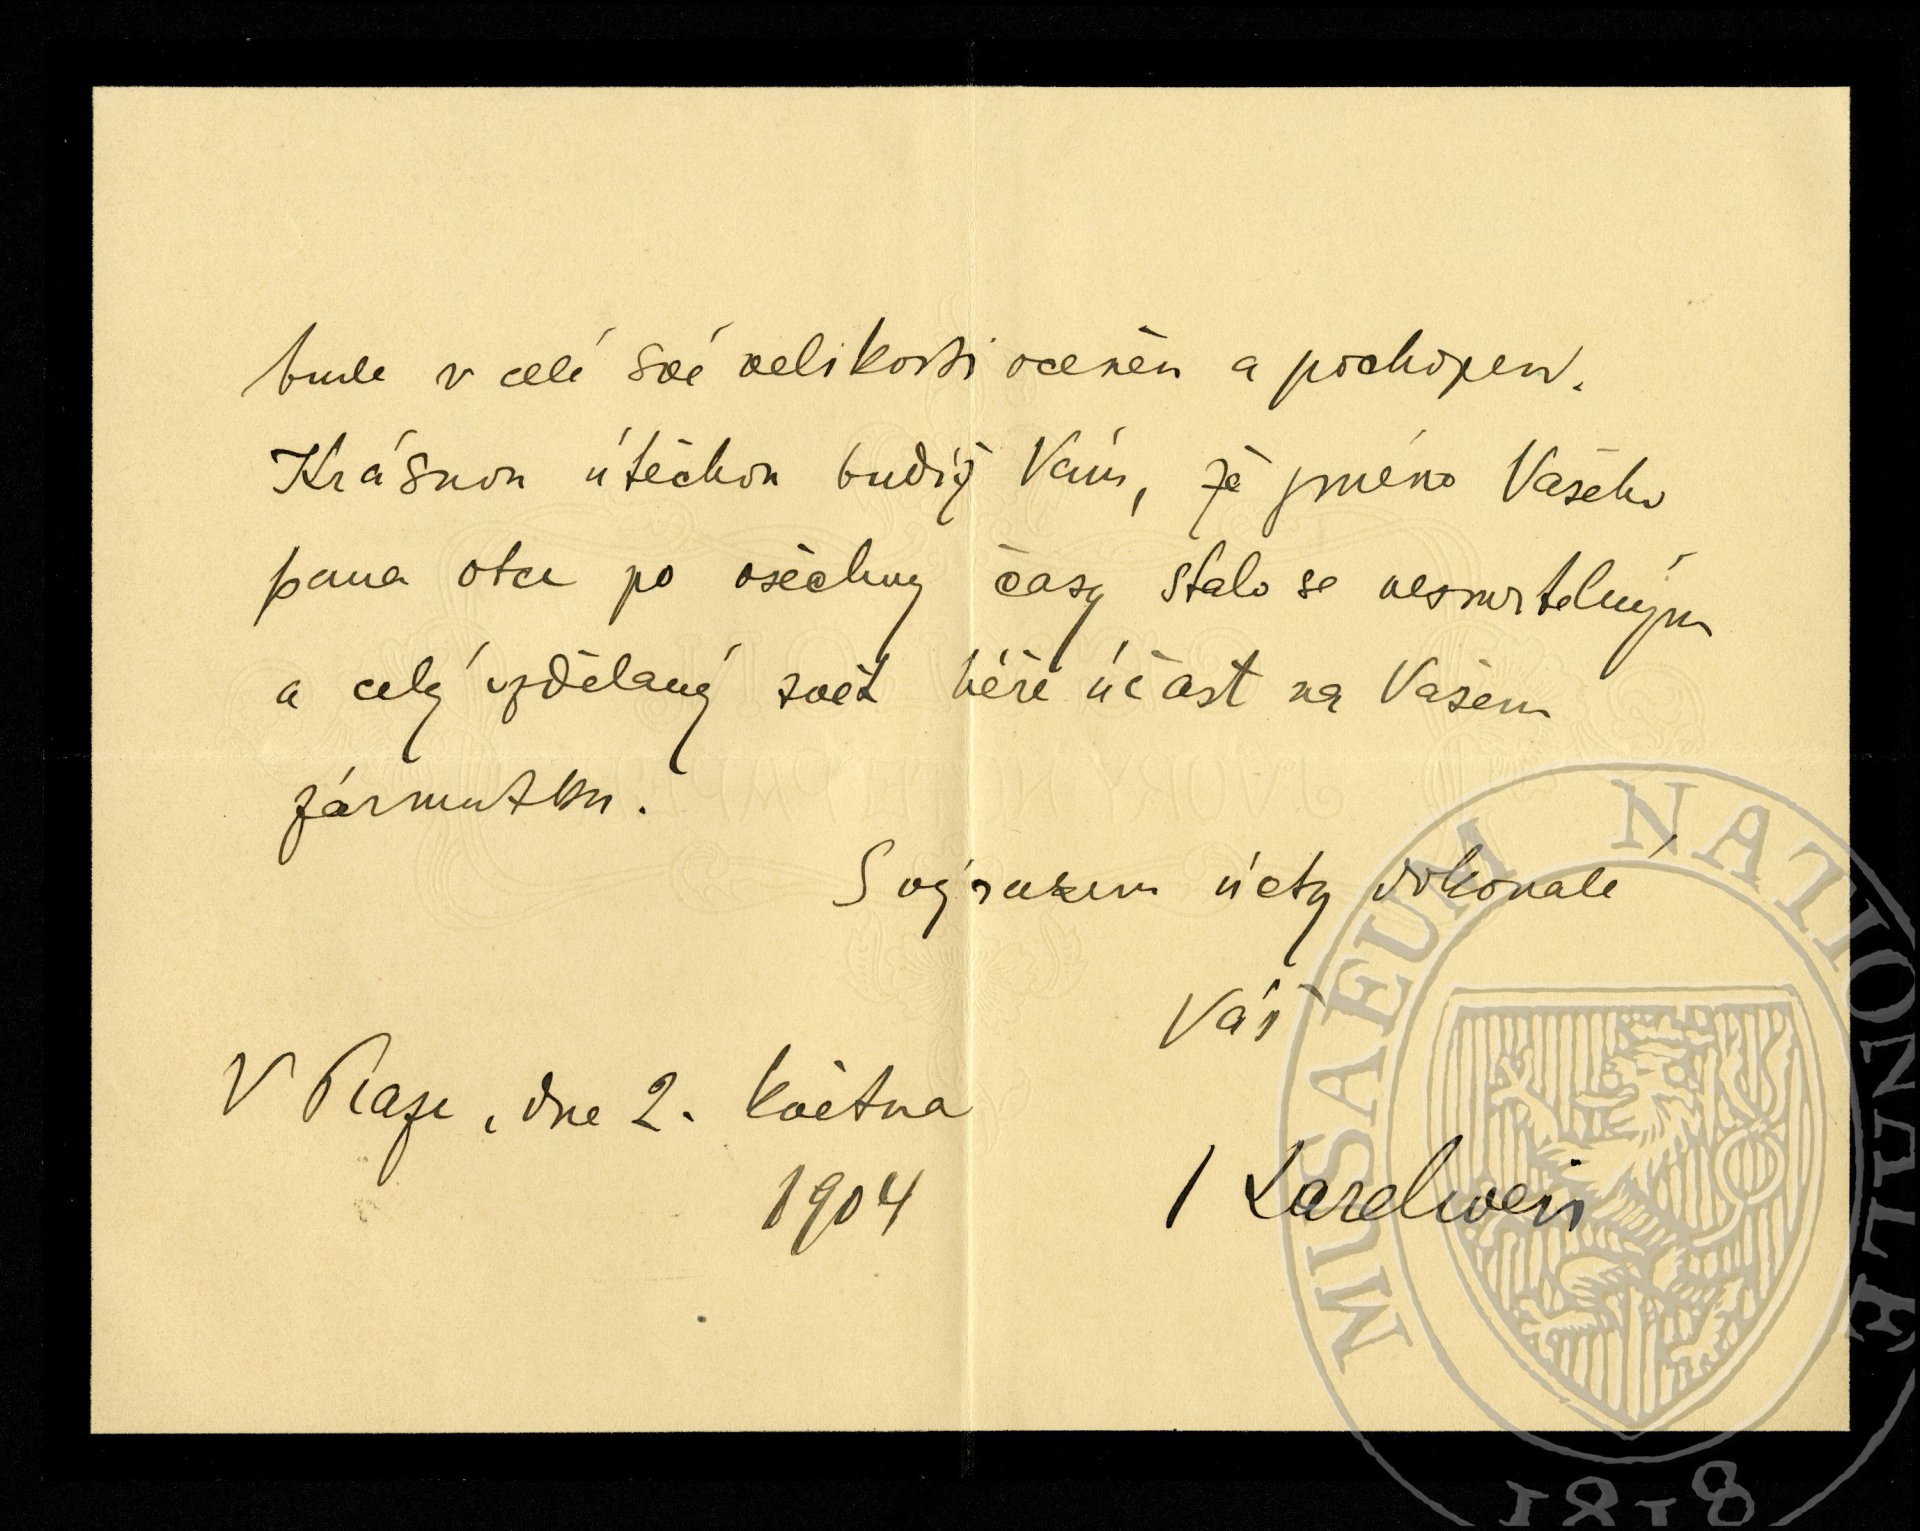 bude v celé své velikosti oceněn a pochopen.
Krásnou útěchou budiž Vám, že jméno Vašeho
pana otce po všechny časy stalo se nesmrtelným
a celý vzdělaný svět béře účast na Vašem
zármutku.
S výrazem úcty dokonalé
Váš
V Praze, dne 2. května
1904
Karel Weis
MUSAEUM NATIONALE
1818